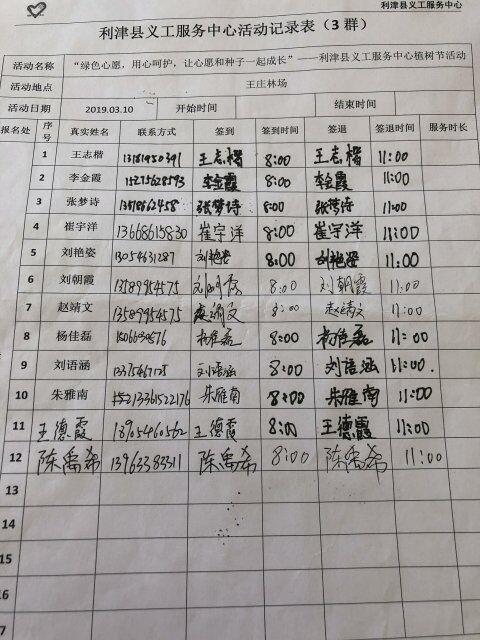 利津县义工服务中心
利津县义工服务中心活动记录表（3 群）
活动名称 “绿色心愿，用心呵护，让心愿和种子一起成长”——利津县义工服务中心植树节活动
活动地点 王庄林场
活动日期 2019.03.10 开始时间 结束时间
报名处 序号 真实姓名 联系方式 签到 签到时间 签退 签退时间 服务时长
1 王志楷 王志楷 8:00 王志楷 11:00
2 李金霞 15275628593 李金霞 8:00 李金霞 11:00
3 张梦诗 张梦诗 8:00 张梦诗 11:00
4 崔宇洋 13668615830 崔宇洋 8:00 崔宇洋 11:00
5 刘艳姿 13054631287 刘艳姿 8:00 刘艳姿 11:00
6 刘朝霞 13589954575 8:00 刘朝霞 11:00
7 赵靖文 13589954575 8:00 赵靖文 11:00
8 杨佳磊 杨佳磊 8:00 杨佳磊 11:00
9 刘语涵 刘语涵 8:00 刘语涵 11:00
10 朱雅南 朱雅南 8:00 朱雅南 11:00
11 王德霞 18954460562 王德霞 8:00 王德霞 11:00
12 陈禹希 13963383311 陈禹希 8:00 陈禹希 11:00
13
14
15
16